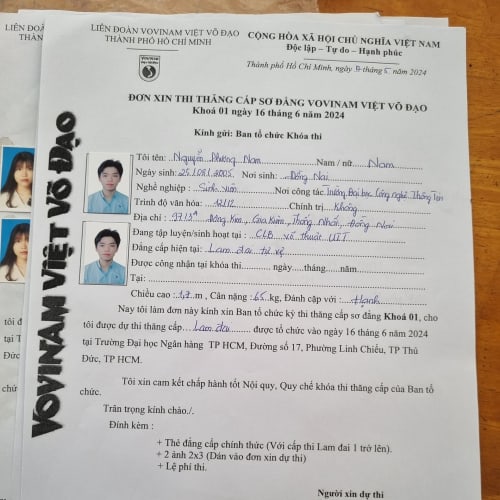 LIÊN ĐOÀN VOVINAM VIỆT VÕ ĐẠO
THÀNH PHỐ HỒ CHÍ MINH
CỘNG HÒA XÃ HỘI CHỦ NGHĨA VIỆT NAM
Độc lập – Tự do – Hạnh phúc
Thành phố Hồ Chí Minh, ngày 9 tháng 5 năm 2024
ĐƠN XIN THI THĂNG CẤP SƠ ĐẲNG VOVINAM VIỆT VÕ ĐẠO
Khoá 01 ngày 16 tháng 6 năm 2024
Kính gửi: Ban tổ chức Khóa thi
VOVINAM VIỆT VÕ ĐẠO
Tôi tên: Nguyễn Phương Nam Nam / nữ: Nam
Ngày sinh: 25/08/2005 Nơi sinh: Đồng Nai
Nghề nghiệp: Sinh viên Nơi công tác: Trường Đại học Công nghệ Thông tin
Trình độ văn hóa: 12/12 Chính trị: Không
Địa chỉ: Đông Kim, Gia Kiệm, Thống Nhất, Đồng Nai
Đang tập luyện/sinh hoạt tại: CLB võ thuật UIT
Đẳng cấp hiện tại: Lam đai tự vệ
Được công nhận tại khóa thi............ ngày.....tháng.....năm......
Tại:
Chiều cao: 1,7 m, Cân nặng: 65 kg, Đánh cặp với: Hạnh
Nay tôi làm đơn này kính xin Ban tổ chức kỳ thi thăng cấp sơ đẳng Khoá 01, cho
tôi được dự thi thăng cấp Lam đai được tổ chức vào ngày 16 tháng 6 năm 2024
tại Trường Đại học Ngân hàng TP HCM, Đường số 17, Phường Linh Chiểu, TP Thủ
Đức, TP HCM.
Tôi xin cam kết chấp hành tốt Nội quy, Quy chế khóa thi thăng cấp của Ban tổ
chức.
Trân trọng kính chào./.
Đính kèm :
+ Thẻ đẳng cấp chính thức (Với cấp thi Lam đai 1 trở lên).
+ 2 ảnh 2x3 (Dán vào đơn xin dự thi)
+ Lệ phí thi.
Người xin dự thi